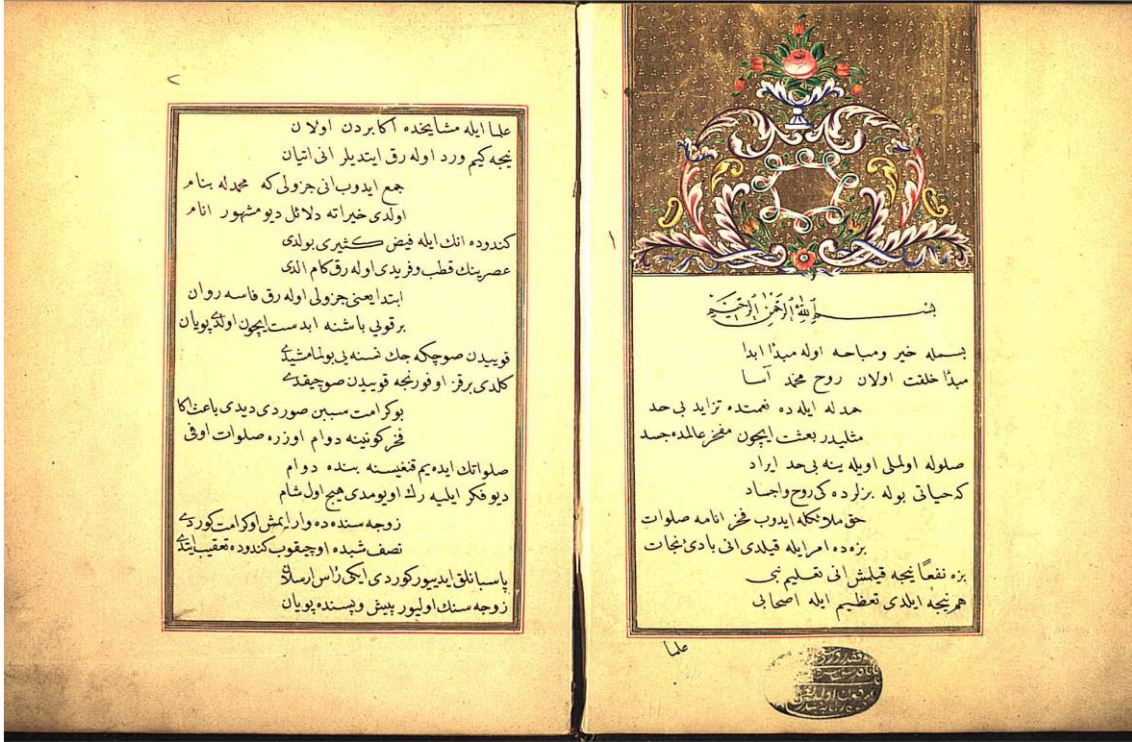 ١
بسم الله الرحمن الرحيم
بسمله خير ومباحه اوله مبدأ ابدا
مبدأ خلقت اولان روح محمد آسا
حمد له ايله ده نعمتده تزايد بى حد
مثليدر بعثت ايچون مفخر عالمده جسد
صلوله اولملى اويله ينه بى حد ايراد
كه حياتى بوله بزلرده كى روح واجساد
حق ملائكله ايدوب فخر انامه صلوات
بزه ده امر ايله قيلدى انى بادئ نجات
بزه نفعاً نيجه قيلمش انى تعليم نبى
هم نيجه ايلدى تعظيم ايله اصحابى
علما
٢
علما ايله مشايخده اكابردن اولان
نيجه كيم ورد اوله رق ايتديلر انى اتيان
جمع ايدوب انى جزولى كه محمد له بنام
اولدى خيراته دلائل ديو مشهور انام
كندوده انك ايله فيض كثيرى بولدى
عصرينك قطب وفريدى اوله رق كام الدى
ابتدا يعنى جزولى اوله رق فاسه روان
بر قويى باشنه ابدست ايچون اولدى پويان
قوييدن صو چكه جك نسنه يى بولمامشيدى
كلدى بر قز اوفورنجه قوييدن صو چيقدى
بو كرامت سببن صوردى ديدى باعث اكا
فخر كونينه دوام اوزره صلوات اوفى
صلواتك ايده يم قنغيسنه بنده دوام
ديو فكر ايليه رك اويومدى هيچ اول شام
زوجه سنده ده وار ايمش او كرامت كوردى
نصف شبده او چيقوب كندوده تعقيب ايتدى
پاسبانلق ايدييور كوردى ايكى رأس ارسلان
زوجه سنك اولييور پيش وپسنده پويان